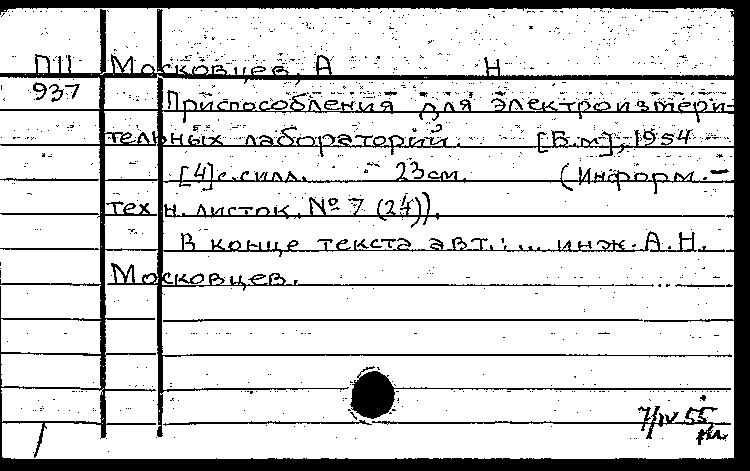 П11 Московцев, А Н
937
Приспособления для электроизмери-
тельных лабораторий. [Б.м], 1954
[4]с.силл. 23см. (Информ.-
техн. листок. № 7 (24)).
В конце текста авт.: ... инж. А.Н.
Московцев.
7/IV 55